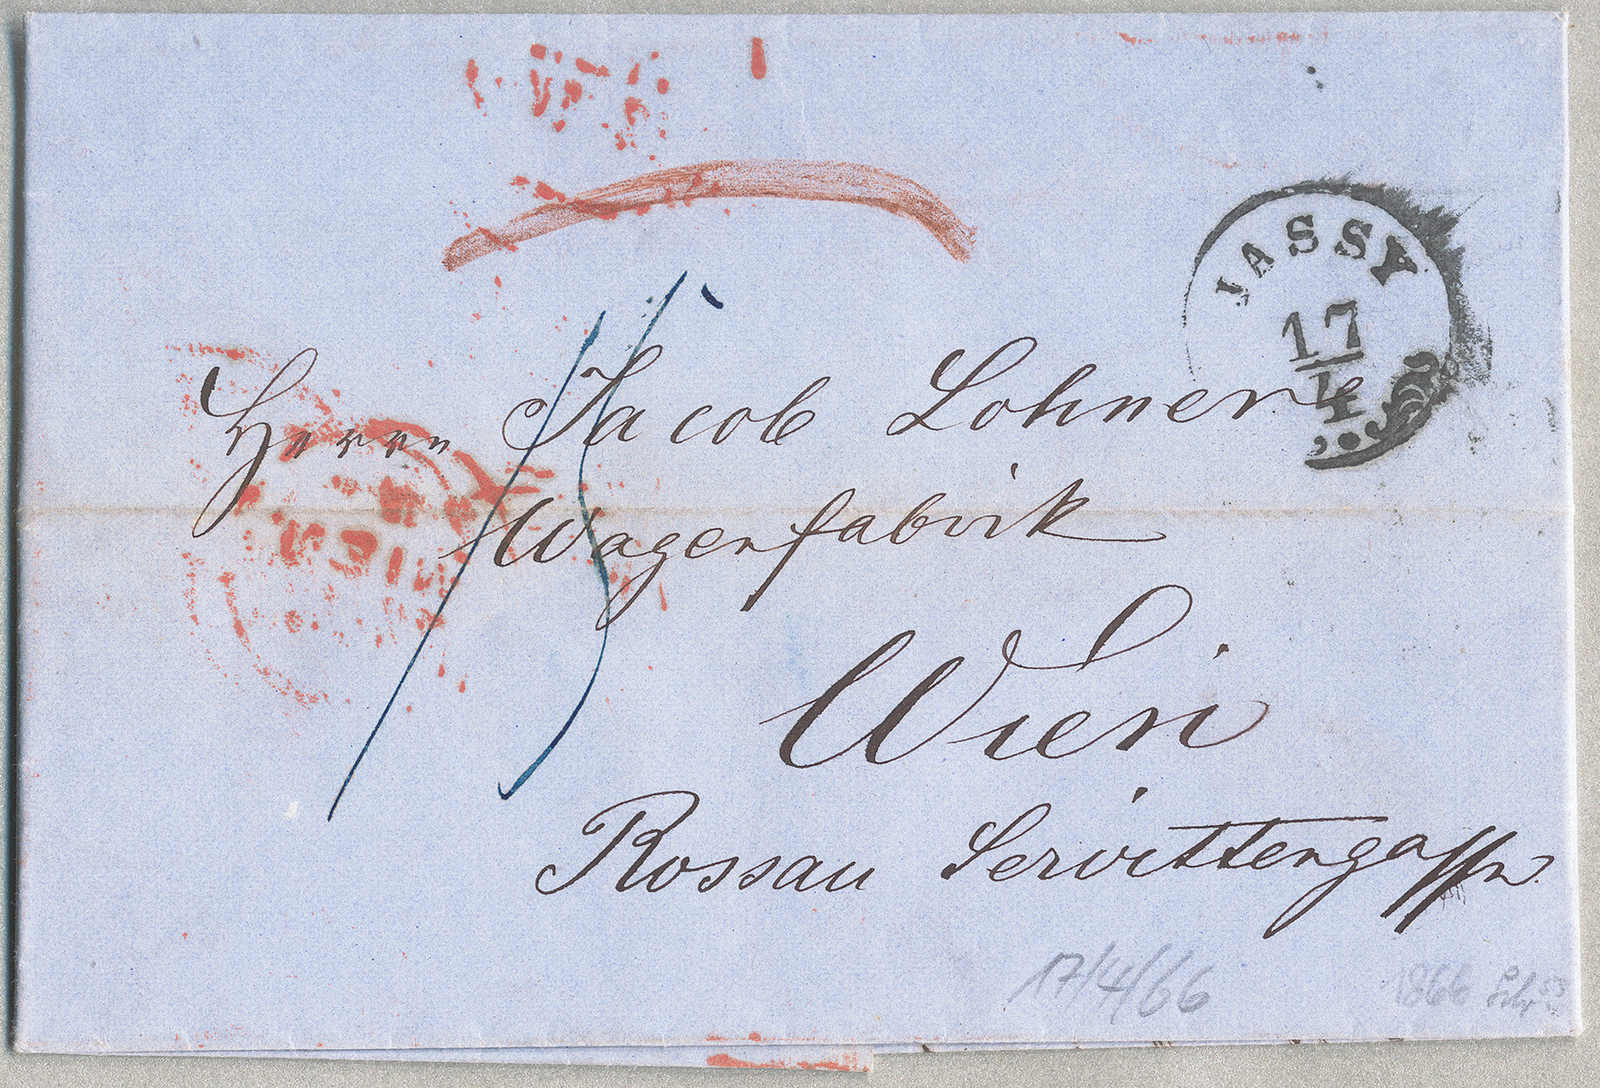 JASSY
17
4
15
Herrn Jacob Lohner
Wagenfabrik
Wien
Rossau Servittengasse
17/4/66
1866